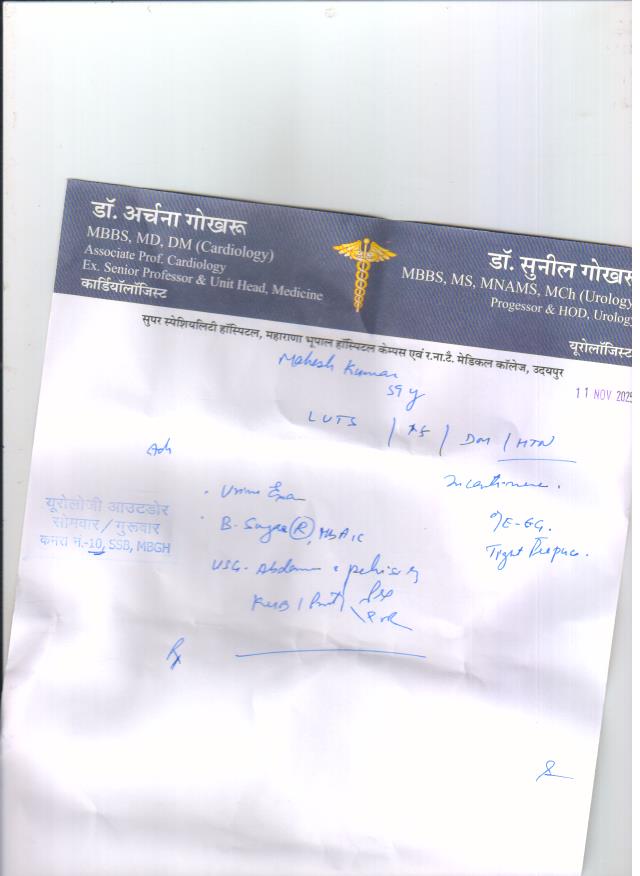 डॉ. अर्चना गोखरू
MBBS, MD, DM (Cardiology)
Associate Prof. Cardiology
Ex. Senior Professor & Unit Head, Medicine
कार्डियॉलॉजिस्ट
डॉ. सुनील गोखरू
MBBS, MS, MNAMS, MCh (Urology
Progessor & HOD, Urology
यूरोलॉजिस्ट
सुपर स्पेशियलिटी हॉस्पिटल, महाराणा भूपाल हॉस्पिटल केम्पस एवं र.ना.टै. मेडिकल कॉलेज, उदयपुर
Mahesh Kumar
59 y
11 NOV 2025
LUTS / / DM / HTN
Adv
Urine Exam
B. Sugar (R), HbA1c
USG. Abdomen & pelvis
KUB / Prost / PVR
O/E - EG.
Tight Prepuce.
यूरोलोजी आउटडोर
सोमवार/गुरूवार
कमरा नं.-10, SSB, MBGH
Rx